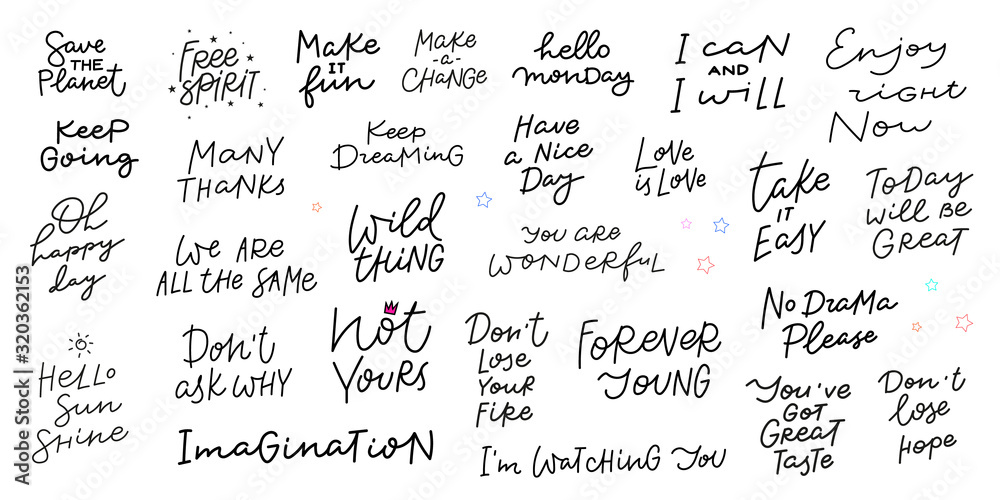 Save
THE
Planet
Free
SPiRiT
Make
IT
fun
Make
-a-
CHANGE
hello
monDay
I can
AND
I will
Enjoy
right
Now
Keep
Going
Many
THanks
Keep
Dreaming
Have
a Nice
Day
Love
is Love
take
IT
EaSY
ToDay
will Be
Great
Oh
happy
day
We are
all the same
Wild
THiNG
You are
wonderful
No Drama
Please
Hello
Sun
Shine
Don't
ask why
Not
Yours
Don't
Lose
Your
Fire
Forever
Young
You've
Got
Great
Taste
Don't
lose
Hope
ImaGinatioN
I'm watching you
Adobe Stock | #320362153